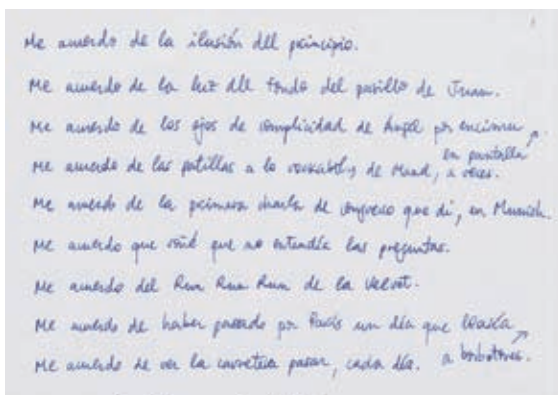 Me acuerdo de la ilusión del principio.
Me acuerdo de la luz del fondo del pasillo de Juan.
Me acuerdo de los ojos de complicidad de Ángel por encima
en pantalla
Me acuerdo de las patillas a lo rockabilly de Mand, a veces.
Me acuerdo de la primera charla de congreso que di, en Munich.
Me acuerdo que soñé que no entendía las preguntas.
Me acuerdo del Run Run Run de la Velvet.
Me acuerdo de haber pasado por París un día que llovía
a borbotones.
Me acuerdo de ver la carretera pasar, cada día.